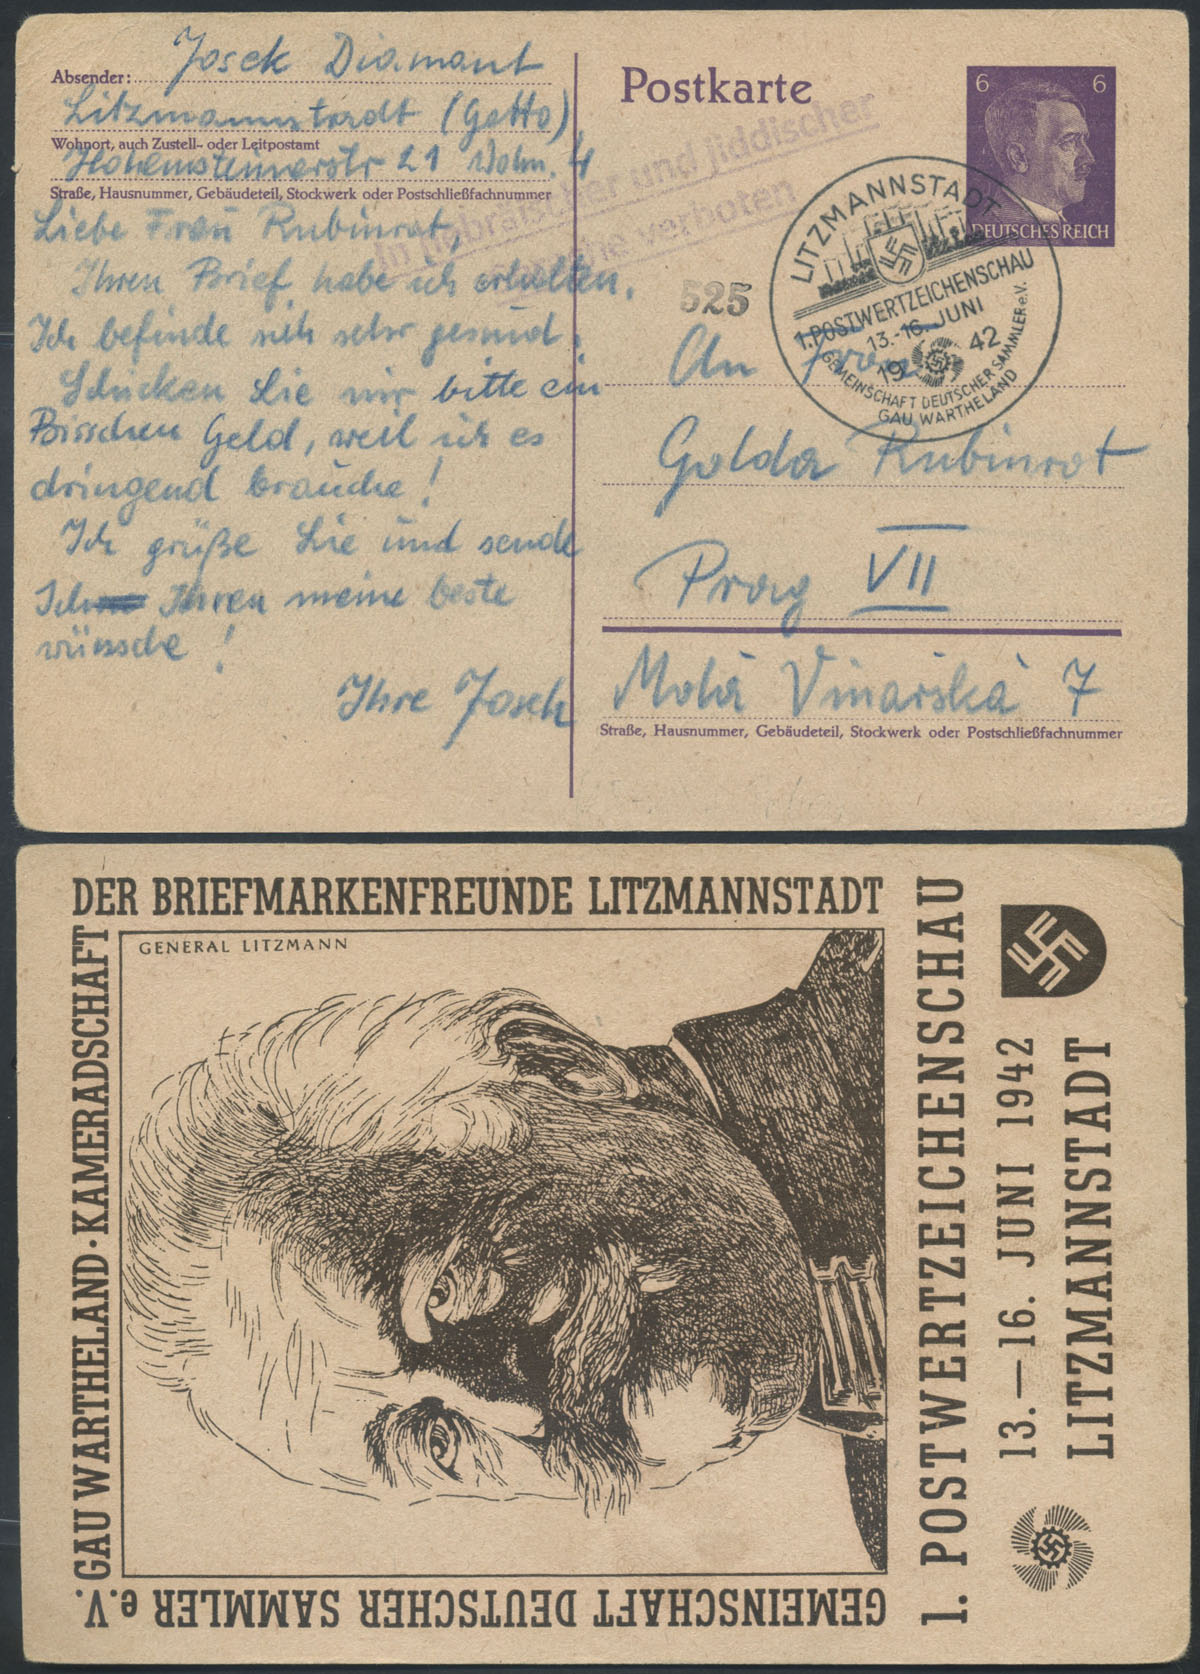 Absender: Josek Diamant
Litzmannstadt (Getto)
Wohnort, auch Zustell- oder Leitpostamt
Hohensteinerstr 21 Wohn. 4
Straße, Hausnummer, Gebäudeteil, Stockwerk oder Postschließfachnummer
Liebe Frau Rubinrot,
Ihren Brief habe ich erhalten.
Ich befinde sich sehr gesund.
Schicken Sie mir bitte ein
Bisschen Geld, weil ich es
dringend brauche!
Ich grüße Sie und sende
Ihnen meine beste
wünsche!
Ihre Josek
Postkarte
6 6
DEUTSCHES REICH
In hebräischer und jiddischer
Sprache verboten
LITZMANNSTADT
1. POSTWERTZEICHENSCHAU
13.-16. JUNI
19 42
GEMEINSCHAFT DEUTSCHER SAMMLER e.V.
GAU WARTHELAND
525
An Frau
Golda Rubinrot
Prag VII
Malá Vinařská 7
Straße, Hausnummer, Gebäudeteil, Stockwerk oder Postschließfachnummer
GEMEINSCHAFT DEUTSCHER SAMMLER e.V.
GAU WARTHELAND · KAMERADSCHAFT
DER BRIEFMARKENFREUNDE LITZMANNSTADT
GENERAL LITZMANN
1. POSTWERTZEICHENSCHAU
13.—16. JUNI 1942
LITZMANNSTADT